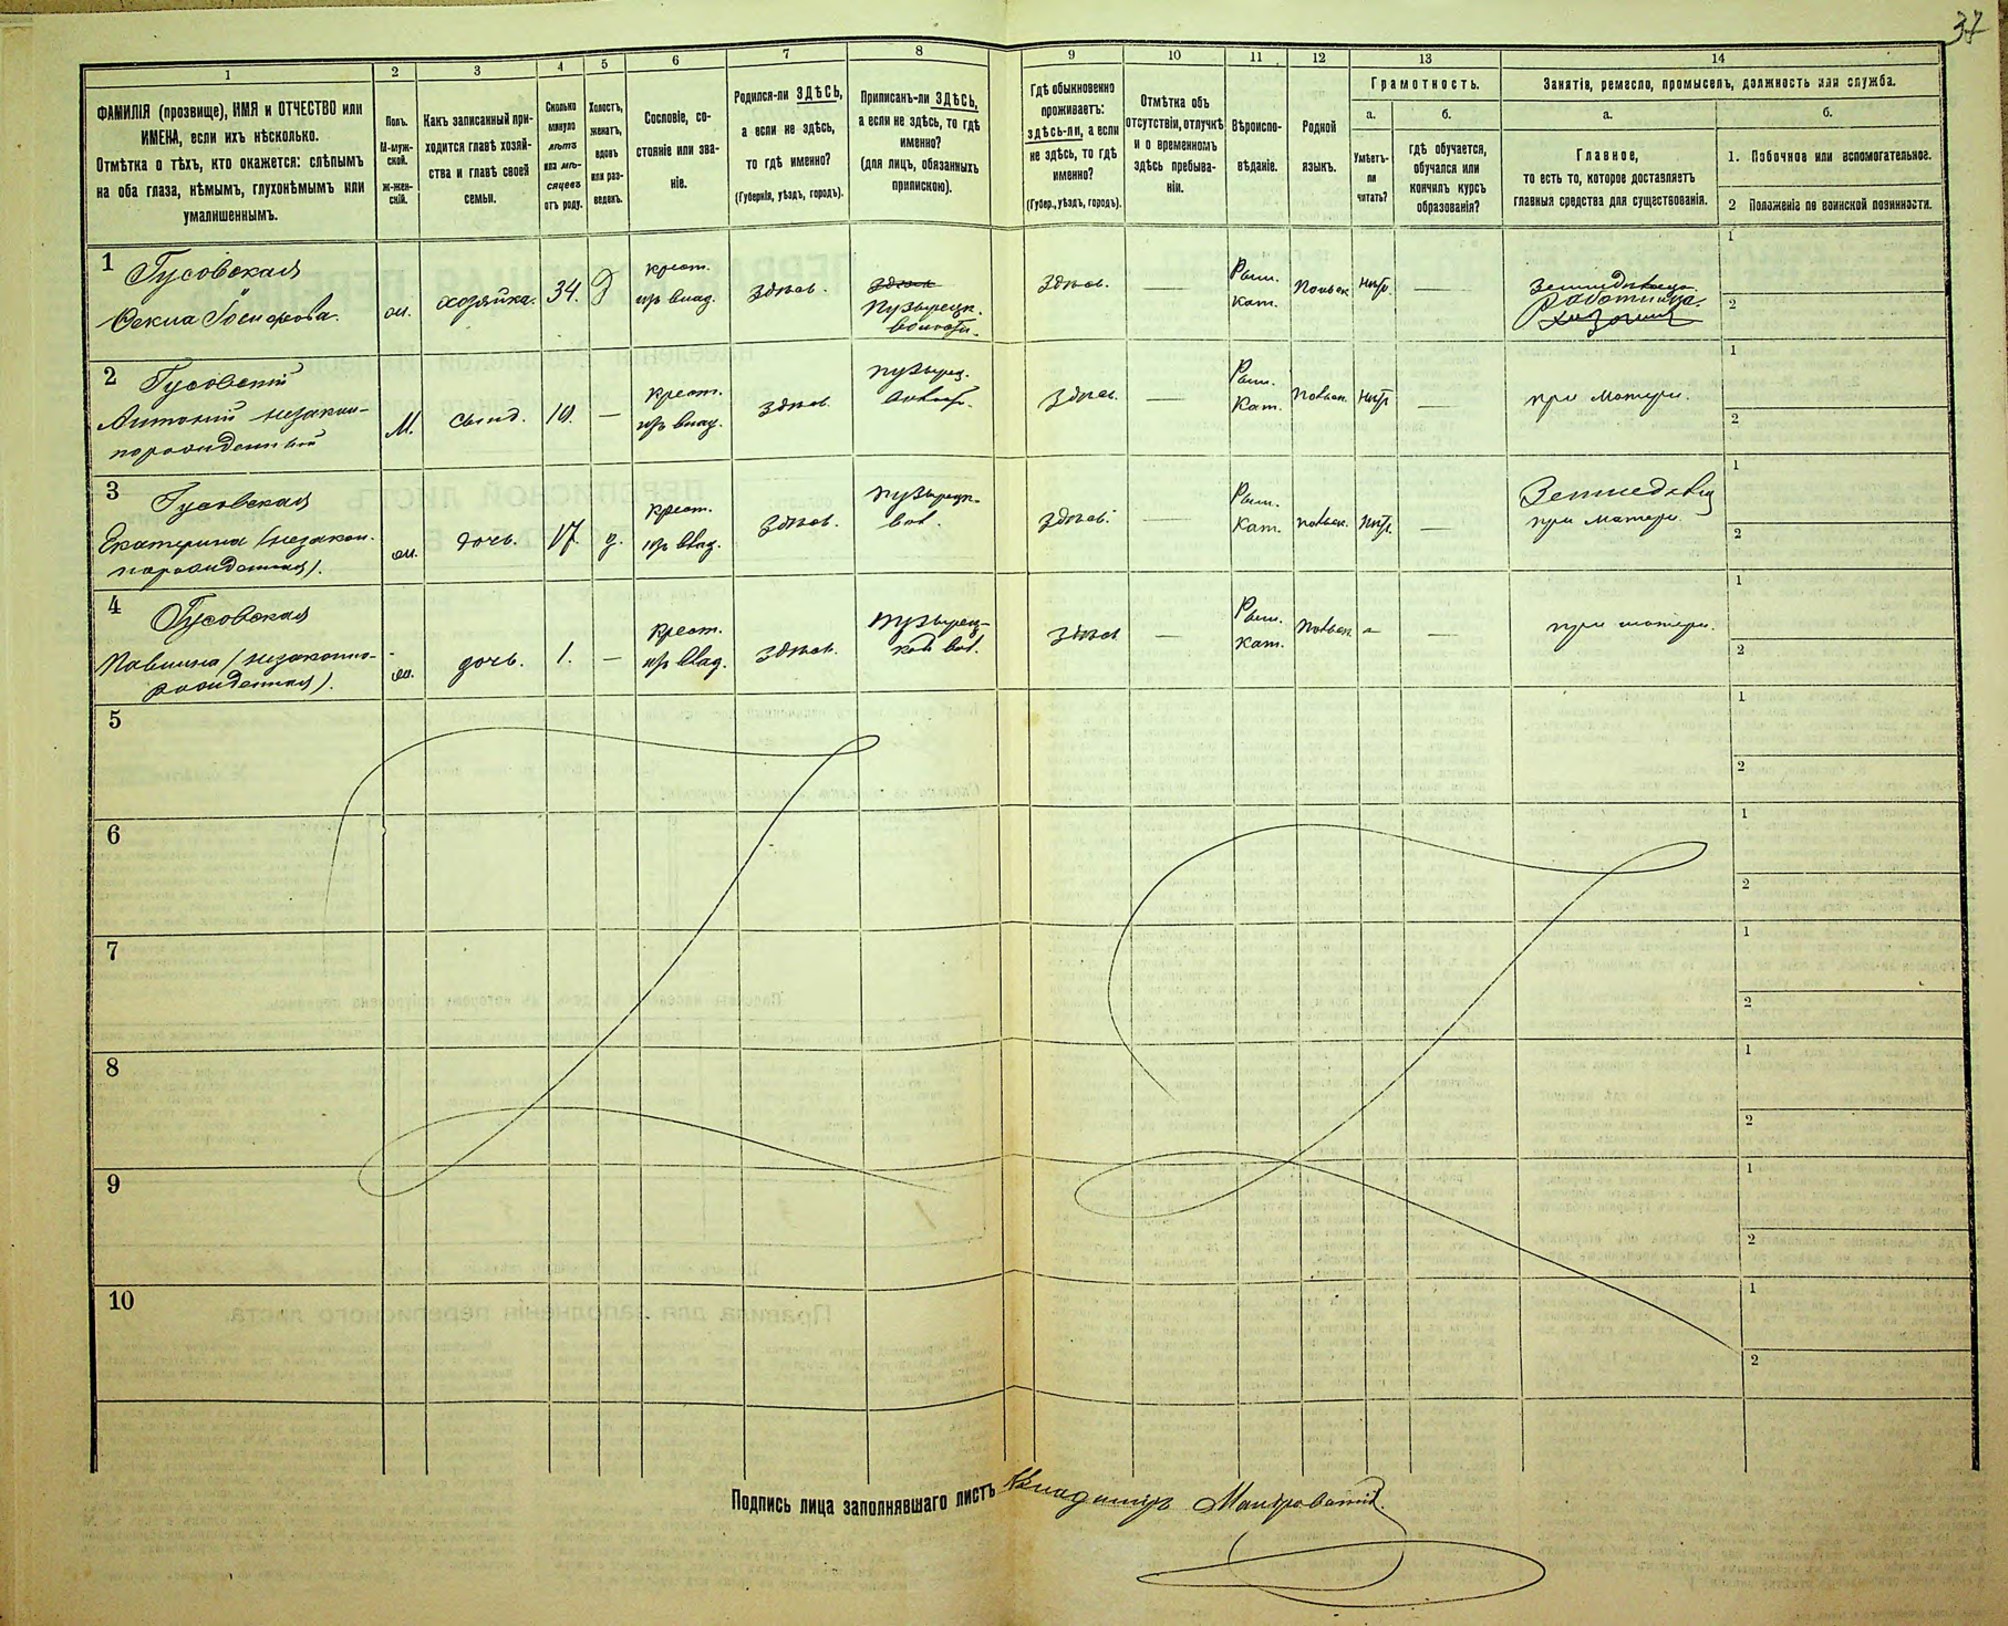 37
1
2
3
4
5
6
7
8
9
10
11
12
13
14
ФАМИЛІЯ (прозвище), ИМЯ и ОТЧЕСТВО или
ИМЕНА, если ихъ нѣсколько.
Отмѣтка о тѣхъ, кто окажется: слѣпымъ
на оба глаза, нѣмымъ, глухонѣмымъ или
умалишеннымъ.
Полъ.
М-муж-
ской.
Ж-жен-
скій.
Какъ записанный при-
ходится главѣ хозяй-
ства и главѣ своей
семьи.
Сколько
минуло
лѣтъ
или мѣ-
сяцевъ
отъ роду.
Холостъ,
женатъ,
вдовъ
или раз-
веденъ.
Сословіе, со-
стояніе или зва-
ніе.
Родился-ли ЗДѢСЬ,
а если не здѣсь,
то гдѣ именно?
(Губернія, уѣздъ, городъ).
Приписанъ-ли ЗДѢСЬ,
а если не здѣсь, то гдѣ
именно?
(для лицъ, обязанныхъ
припискою).
Гдѣ обыкновенно
проживаетъ:
здѣсь-ли, а если
не здѣсь, то гдѣ
именно?
(Губер., уѣздъ, городъ).
Отмѣтка объ
отсутствіи, отлучкѣ
и о временномъ
здѣсь пребыва-
ніи.
Вѣроиспо-
вѣданіе.
Родной
языкъ.
Грамотность.
а.
Умѣетъ-
ли
читать?
б.
гдѣ обучается,
обучался или
кончилъ курсъ
образованія?
Занятія, ремесло, промыселъ, должность или служба.
а.
Главное,
то есть то, которое доставляетъ
главныя средства для существованія.
б.
1. Побочное или вспомогательное.
2 Положеніе по воинской повинности.
1 Гусовская
ж. хозяйка. 34. д
крест.
изъ влад.
здѣсь.
здѣсь
Пузырецк.
волости.
здѣсь. —
Рим.
кат.
польск нѣтъ. —
Земледѣлица
Работница.
1
2
2 Гусовскій
Антоній незакон-
норожденный
М. сынъ. 10. —
крест.
изъ влад.
здѣсь
пузырец.
волости.
здѣсь. —
Рим.
Кат.
польск. нѣтъ —
при матери.
1
2
3 Гусовская
Екатерина (незакон.
норожденная).
ж. дочь. 17. д.
крест.
изъ влад.
здѣсь.
пузырецк.
вол.
здѣсь. —
Рим.
Кат.
польск. нѣтъ. —
Земледѣлія
при матери.
1
2
4 Гусовская
Павлина (незаконно-
рожденная).
ж. дочь. 1. —
крест.
изъ влад.
здѣсь.
пузырец-
кой вол.
здѣсь —
Рим.
кат.
польск — —
при матери.
1
2
5
1
2
6
1
2
7
1
2
8
1
2
9
1
2
10
1
2
Подпись лица заполнявшаго листъ Владиміръ